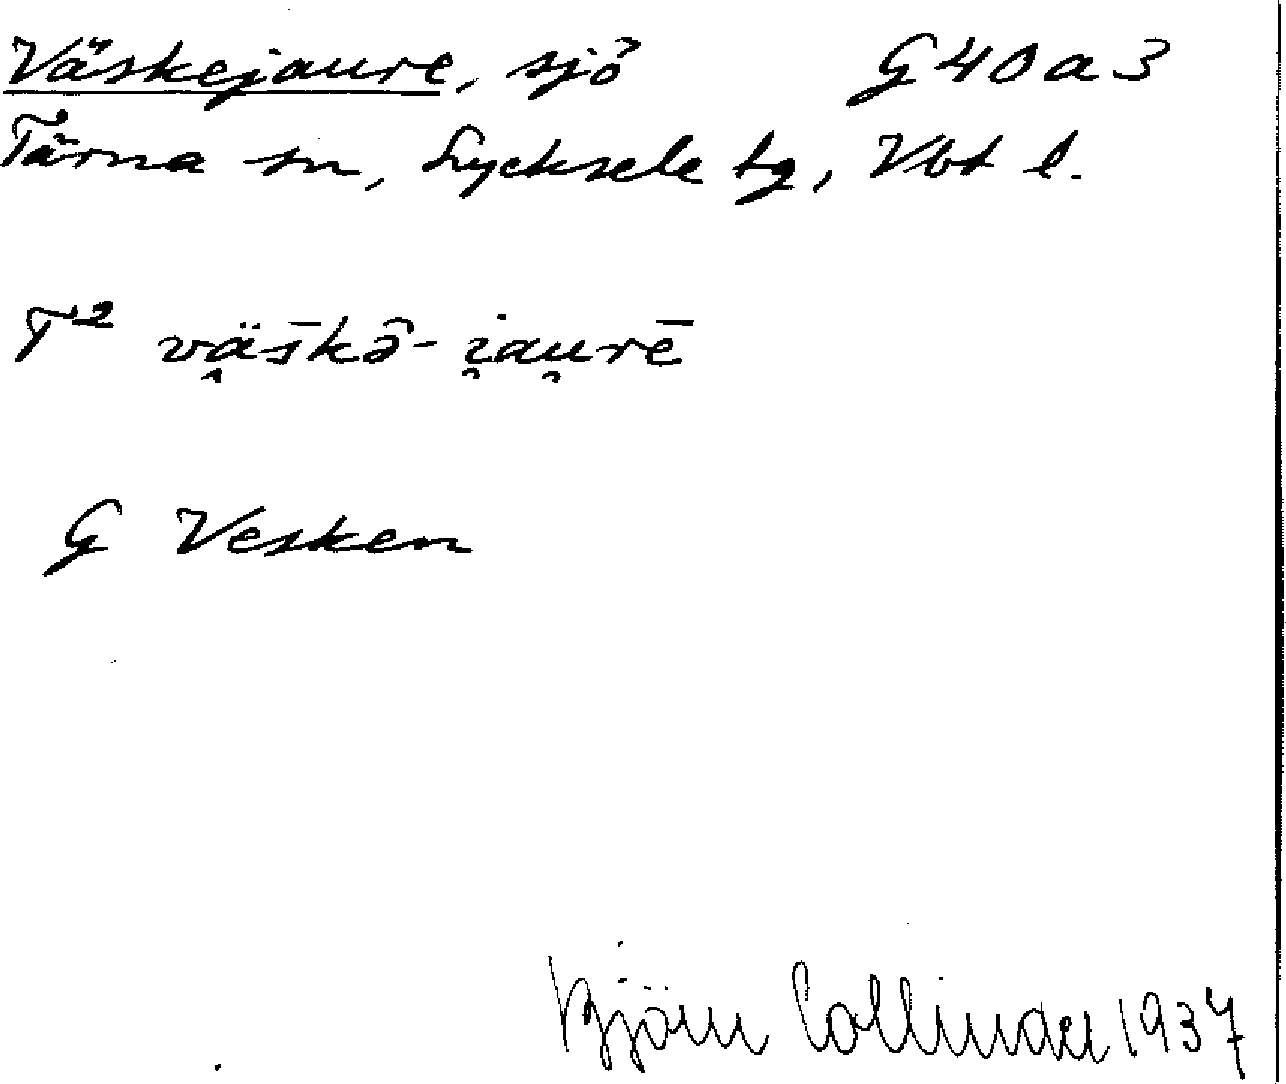 Väskejaure, sjö G40a3
Tärna sn, Lycksele tg, Vbt l.
T² vä̭s̄kə̑-i̯au̯rē
G Vesken
Björn Collinder 1937